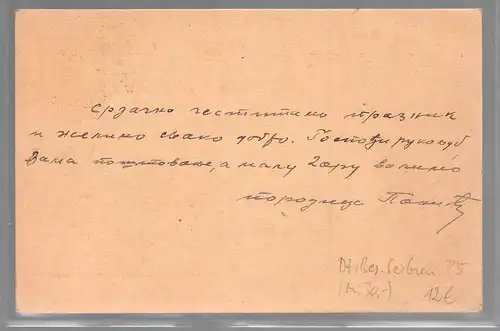 Срдачно честитамо празник
и желимо свако добро. Господи рукољуб,
Вама поштовање, а малу Зору волимо
породица
Dt. Bes. Serbien P5
12€